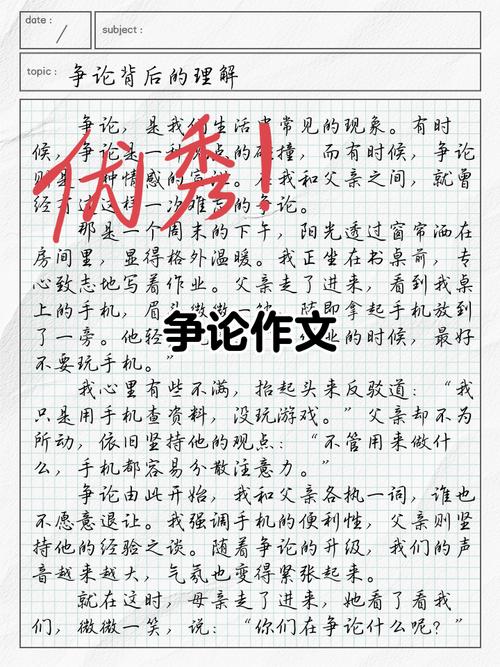 date :
subject :
topic : 争论背后的理解
争论，是我们生活中常见的现象。有时
候，争论是一种观点的碰撞，而有时候，争论
则是一种情感的宣泄。在我和父亲之间，就曾
经有过这样一次难忘的争论。
优秀！
那是一个周末的下午，阳光透过窗帘洒在
房间里，显得格外温暖。我正坐在书桌前，专
心致志地写着作业。父亲走了进来，看到我桌
上的手机，眉头微微一皱，随即拿起手机放到
了一旁。他轻 业的时候，最好
争论作文
不要玩手机。”
我心里有些不满，抬起头来反驳道：“我
只是用手机查资料，没玩游戏。”父亲却不为
所动，依旧坚持他的观点：“不管用来做什
么，手机都容易分散注意力。”
争论由此开始，我和父亲各执一词，谁也
不愿意退让。我强调手机的便利性，父亲则坚
持他的经验之谈。随着争论的升级，我们的声
音越来越大，气氛也变得紧张起来。
就在这时，母亲走了进来，她看了看我
们，微微一笑，说：“你们在争论什么呢？”